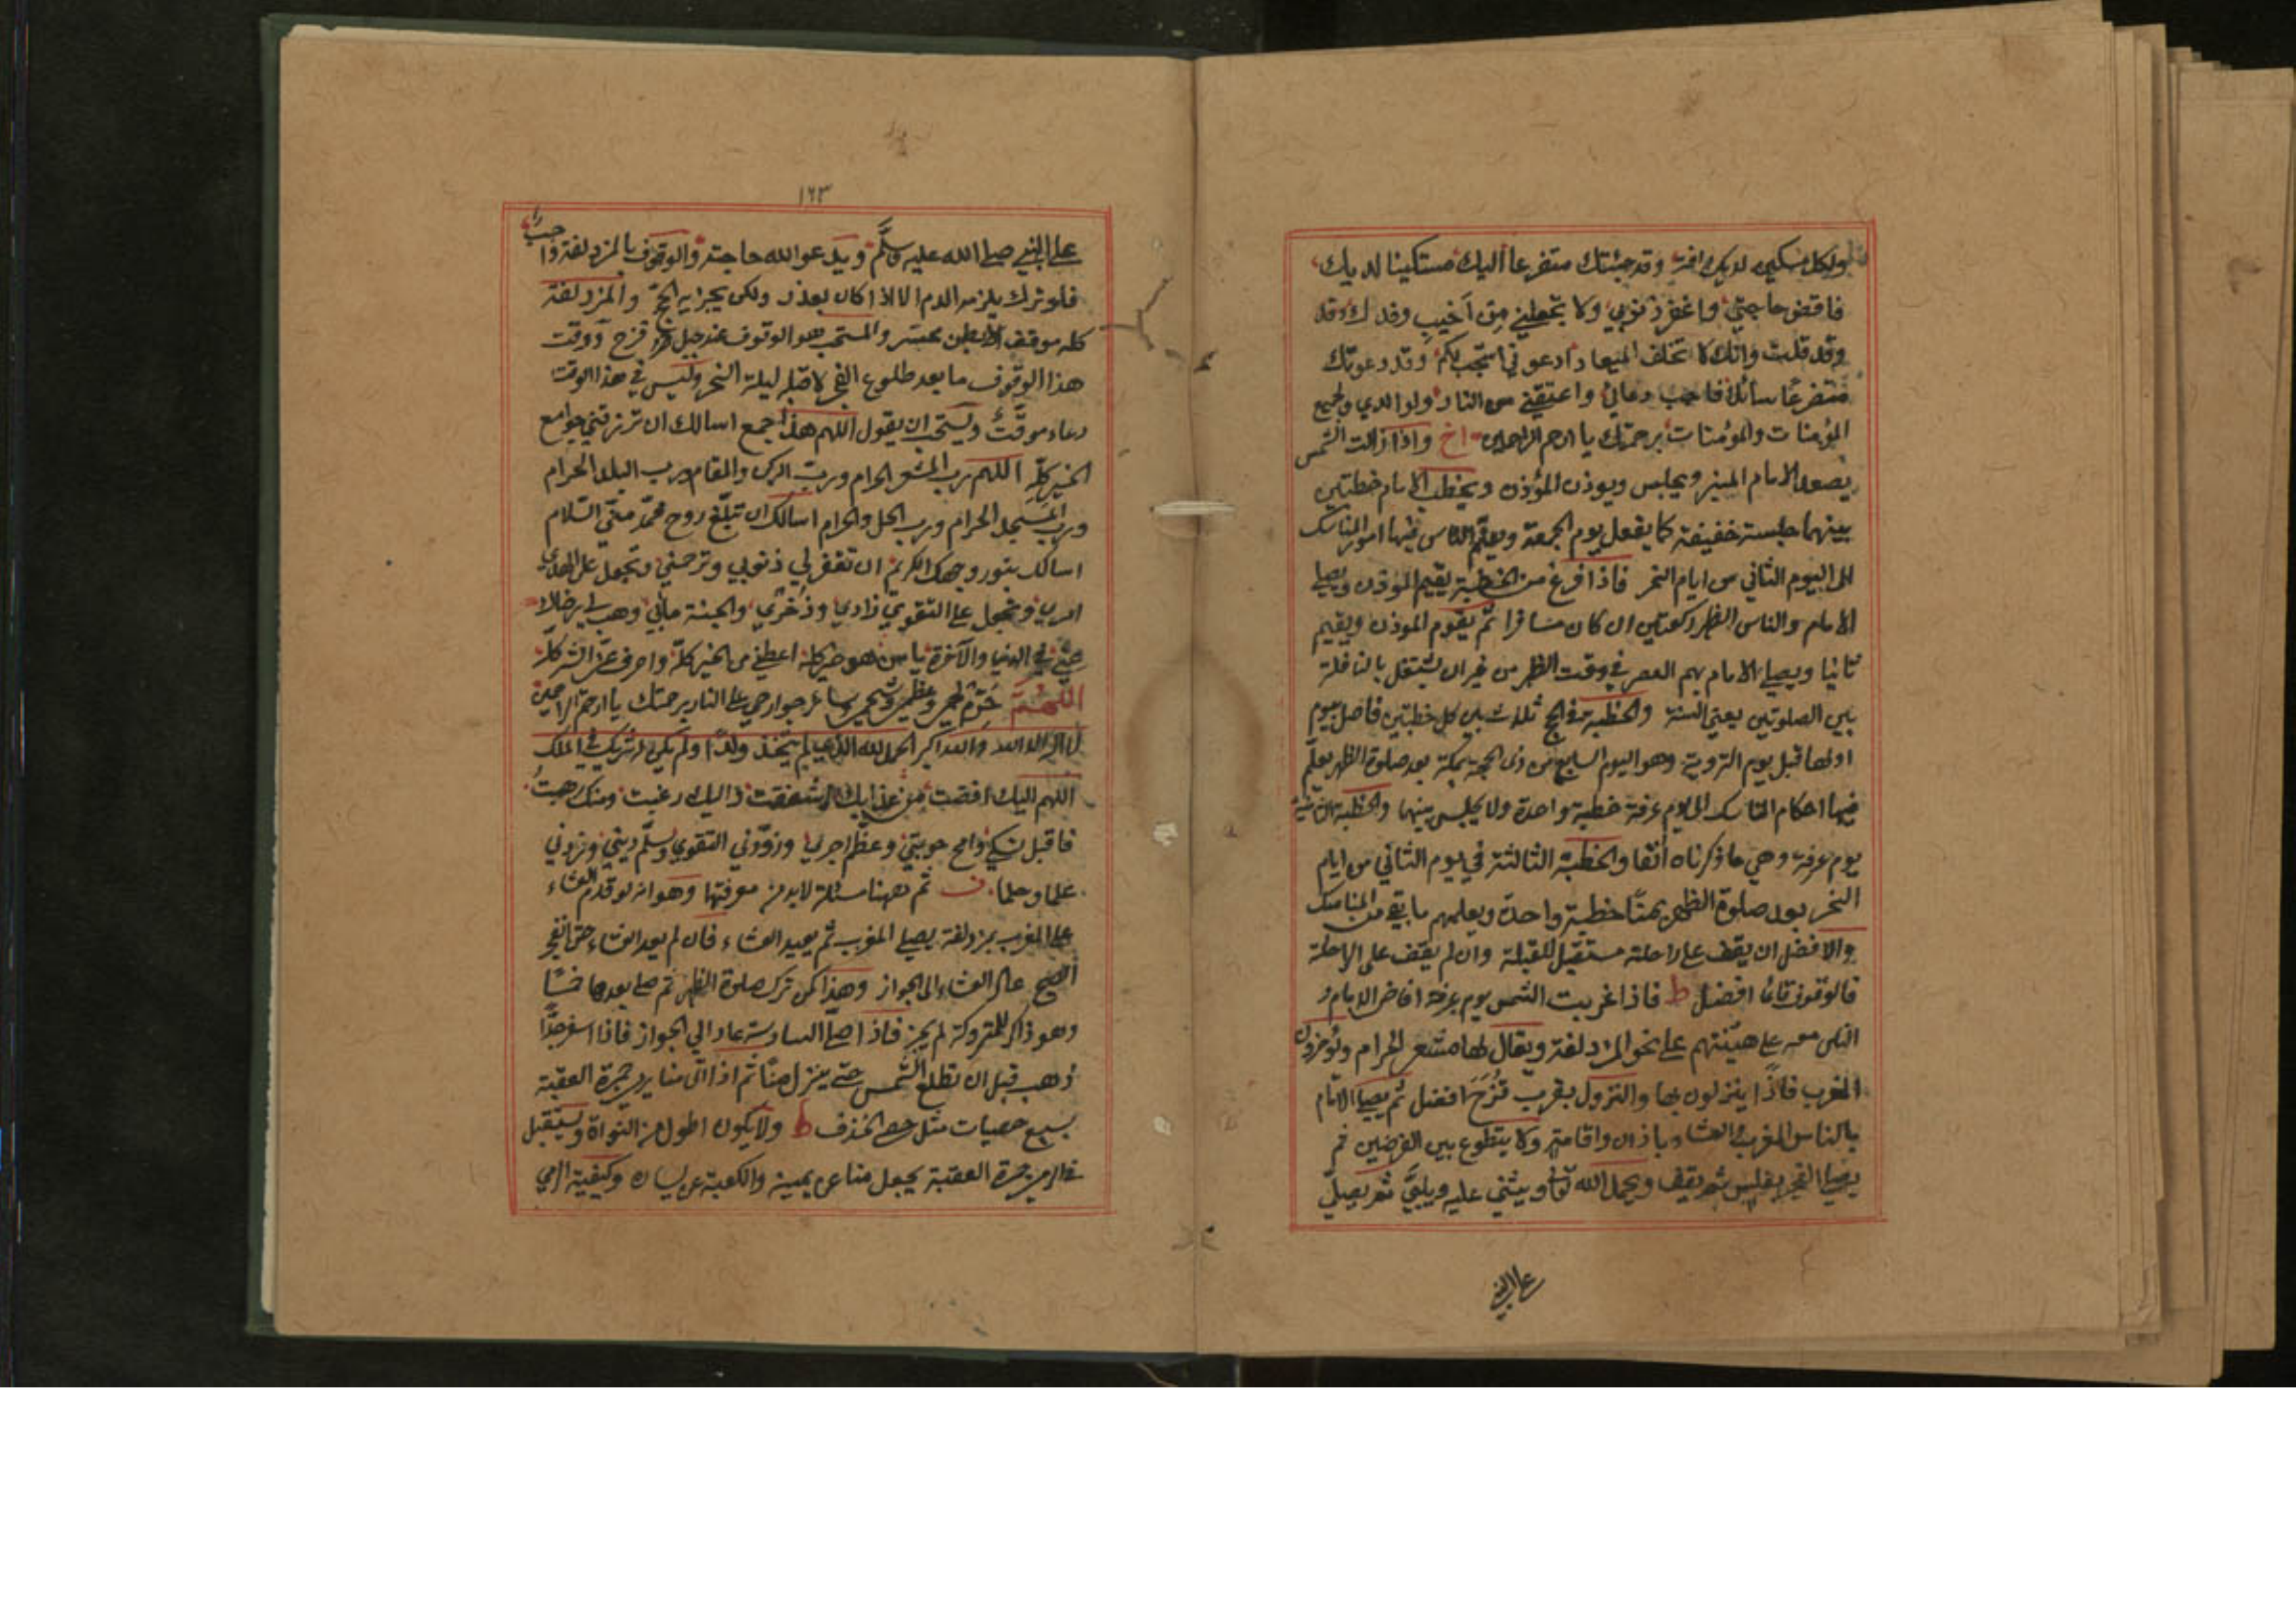 ولكل مسكين لديك رافة وقد جئتك متضرعا اليك مستكينا لديك
فاقض حاجتي واغفر ذنوبي ولا تجعلني من اخيب وفدك وقد
وقد قلت وانك لا تخلف الميعاد ادعوني استجب لكم وقد دعوتك
متضرعا سائلا فاجب دعائي واعتقني من النار ولوالدي ولجميع
المؤمنات والمؤمنات برحمتك يا ارحم الراحمين واذا زالت الشمس
يصعد الامام المنبر ويجلس ويوذن المؤذن ويخطب الامام خطبتين
بينهما جلسة خفيفة كما يفعل يوم الجمعة ويعلم الناس فيها امور المناسك
الى اليوم الثاني من ايام النحر فاذا فرغ من الخطبة يقيم الموذن ويصلي
الامام والناس الظهر ركعتين ان كان مسافرا ثم يقوم الموذن ويقيم
ثانيا ويصلي الامام بهم العصر في وقت الظهر من غير ان يشتغل بالنافلة
بين الصلوتين يعني السنة والخطبة في الحج ثلاث بين كل خطبتين فاصل بيوم
اولها قبل يوم التروية وهو اليوم السابع من ذي الحجة بمكة بعد صلوة الظهر يعلم
فيها احكام المناسك الى يوم عرفة خطبة واحدة ولا يجلس بينهما والخطبة الثانية
يوم عرفة وهي ما ذكرناه آنفا والخطبة الثالثة في يوم الثاني من ايام
النحر بعد صلوة الظهر بمنا خطبة واحدة ويعلمهم ما بقي من المناسك
والافضل ان يقف على راحلته مستقبل القبلة وان لم يقف على الراحلة
فالوقوف قائما افضل ط فاذا غربت الشمس يوم عرفة افاض الامام و
الناس معه على هينتهم على نحو المزدلفة ويقال لها مشعر الحرام ويؤخرون
المغرب فاذا ينزلون بها والنزول بقرب قزح افضل ثم يصلي الامام
بالناس المغرب والعشاء باذان واقامة ولا يتطوع بين الفرضين ثم
يصلي الفجر بغلس ثم يقف ويحمد الله تعالى ويثني عليه ويلبي ثم يصلي
على النبي
١٦٣
على النبي صلى الله عليه وسلم ويدعو الله حاجته والوقوف بالمزدلفة واجب
فلو ترك يلزمه الدم الا اذا كان بعذر ولكن يجزيه الحج والمزدلفة
كله موقف الا بطن محسر والمستحب هو الوقوف عند جبل قزح ووقت
هذا الوقوف ما بعد طلوع الفجر لا قبله ليلة النحر وليس في هذا الوقت
دعاء موقت ويستحب ان يقول اللهم هذا جمع اسالك ان ترزقني جوامع
الخير كله اللهم رب المشعر الحرام ورب الركن والمقام ورب البلد الحرام
ورب المسجد الحرام ورب الحل والحرام اسالك ان تبلغ روح محمد مني السلام
اسالك بنور وجهك الكريم ان تغفر لي ذنوبي وترحمني وتجعل على الهدي
امري وتجعل على التقوي زادي وذخري والجنة مابي وهب لي رضاك
عني في الدنيا والآخرة يا من هو خير كله اعطني من الخير كله واصرف عني الشر كله
اللهم حرم لحمي وعظمي وشحمي وسائر جوارحي على النار برحمتك يا ارحم الراحمين
لا اله الا الله والله اكبر الحمد لله الذي لم يتخذ ولدا ولم يكن له شريك في الملك
اللهم اليك افضت من عذابك اشفقت واليك رغبت ومنك رهبت
فاقبل نسكي وامح حوبتي وعظم اجري وزودني التقوي وسلم ديني وزدني
علما وحلما ف ثم ههنا مسئلة لابد من معرفتها وهو انه لو قدم العشاء
على المغرب بمزدلفة يصلي المغرب ثم يعيد العشاء فان لم يعد العشاء حتى انفجر
الصبح عاد العشاء الى الجواز وهذا كمن ترك صلوة الظهر ثم صلى بعدها خمسا
وهو ذاكر للمتروكة لم يجز فاذا صلى السادسة عاد الي الجواز فاذا اسفر جدا
ذهب قبل ان تطلع الشمس حتى ينزل منا ثم اذا اتى منا يرمي جمرة العقبة
بسبع حصيات مثل حصى الخذف ط ولا يكون اطول من النواة ويستقبل
في الرمي جمرة العقبة يجعل منا عن يمينه والكعبة عن يساره وكيفية الرمي